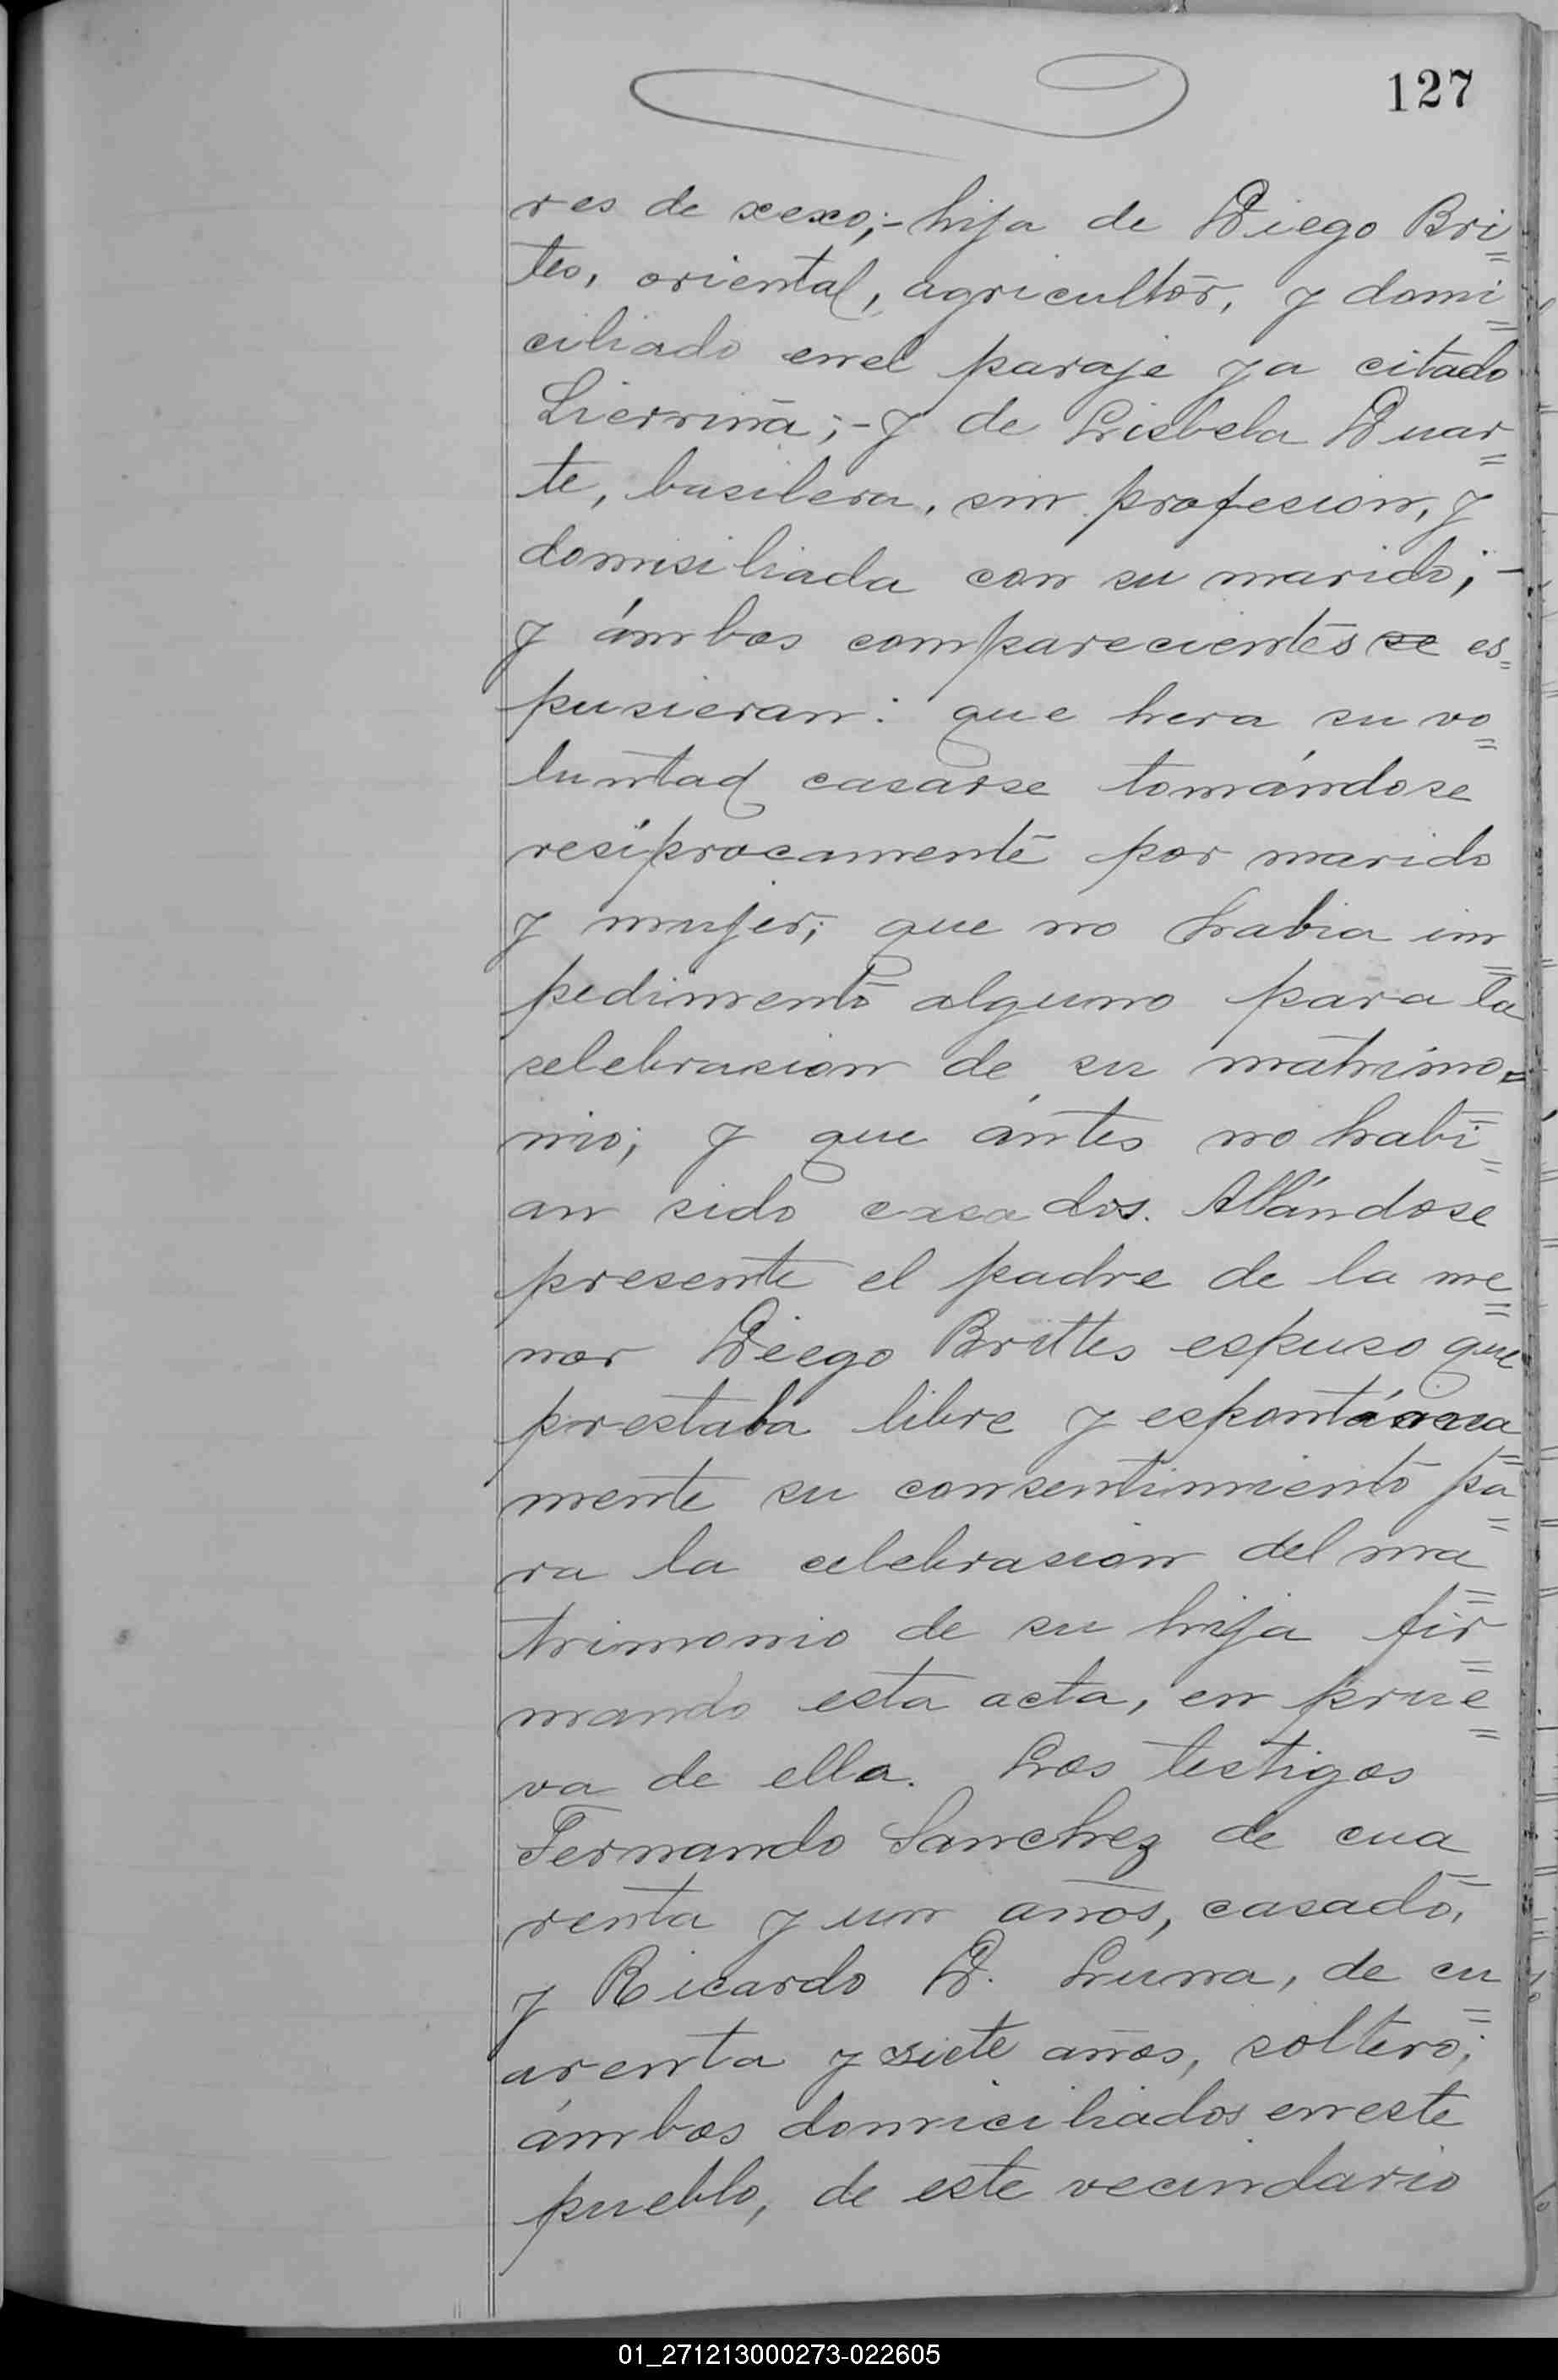 127
res de sexo;- hija de Diego Bri=
tes, oriental, agricultor, y domi=
ciliado en el paraje ya citado
y de Lisbela Duar=
te, basilera, sin profesion, y
domisiliada con su marido;-
y ámbos comparecientes se es=
pusieran: que hera su vo=
luntad casarse tomándose
resíprocamente por marido
y mujer; que no habia im=
pedimento alguno para la
selebrasion de su matrimo=
nio; y que ántes no habi=
an sido casados. Allándose
presente el padre de la me=
nor Diego Brittes espuso que
prestaba libre y espontánea=
mente su consentimiento pa=
ra la celebrasion del ma=
trimonio de su hija fir=
mando esta acta, en prue=
va de ella. Los testigos
Fernando Sanchez de cua=
renta y un años, casado,
y Ricardo D. Luna, de cu=
arenta y siete años, soltero;
ámbos domiciliados en este
pueblo, de este vecindario
01_271213000273-022605